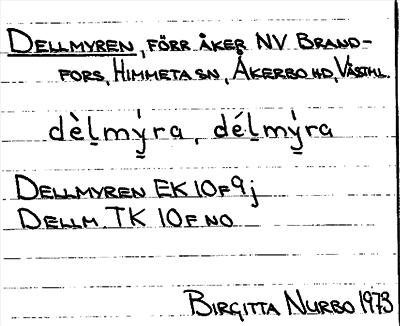 DELLMYREN, FÖRR ÅKER NV BRAND-
FORS, HIMMETA SN, ÅKERBO HD, VÄSTML.
dèl̠mý̠ra, dél̠mý̠ra
DELLMYREN EK 10F9j
DELLM. TK 10F NO
BIRGITTA NURBO 1973